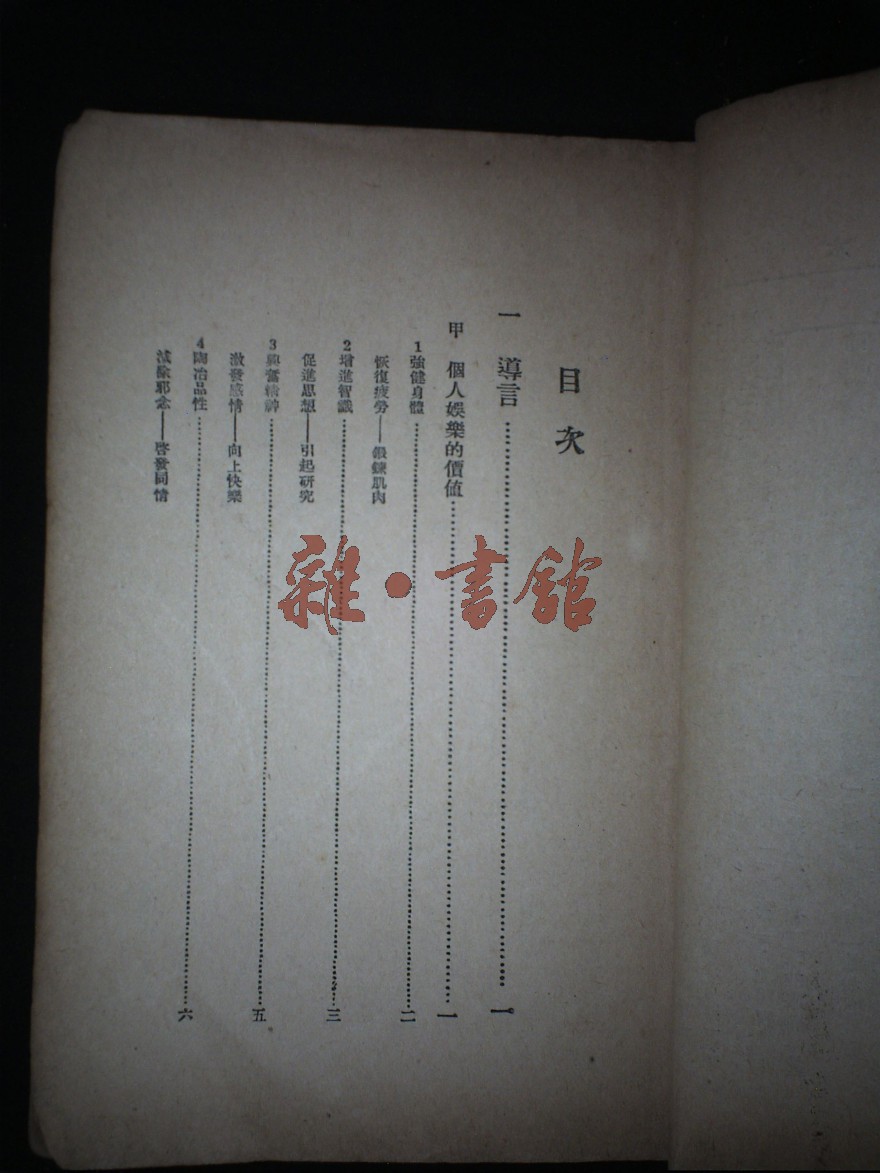 目次
一 導言……一
甲 個人娛樂的價值……一
1強健身體……二
恢復疲勞——鍛鍊肌肉
2增進智識……三
促進思想——引起研究
3興奮精神……五
激發感情——向上快樂
4陶冶品性……六
減除邪念——啓發同情
雜·書館